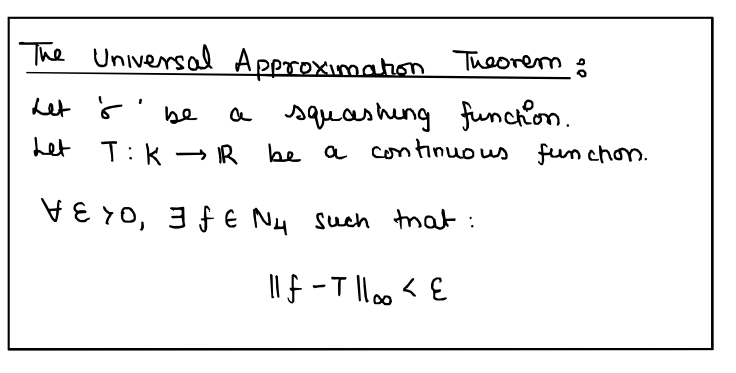 The Universal Approximation Theorem :
Let 'σ' be a squashing function.
Let T : K → ℝ be a continuous function.
∀ ε > 0, ∃ f ∈ N₄ such that :
‖f - T‖∞ < ε